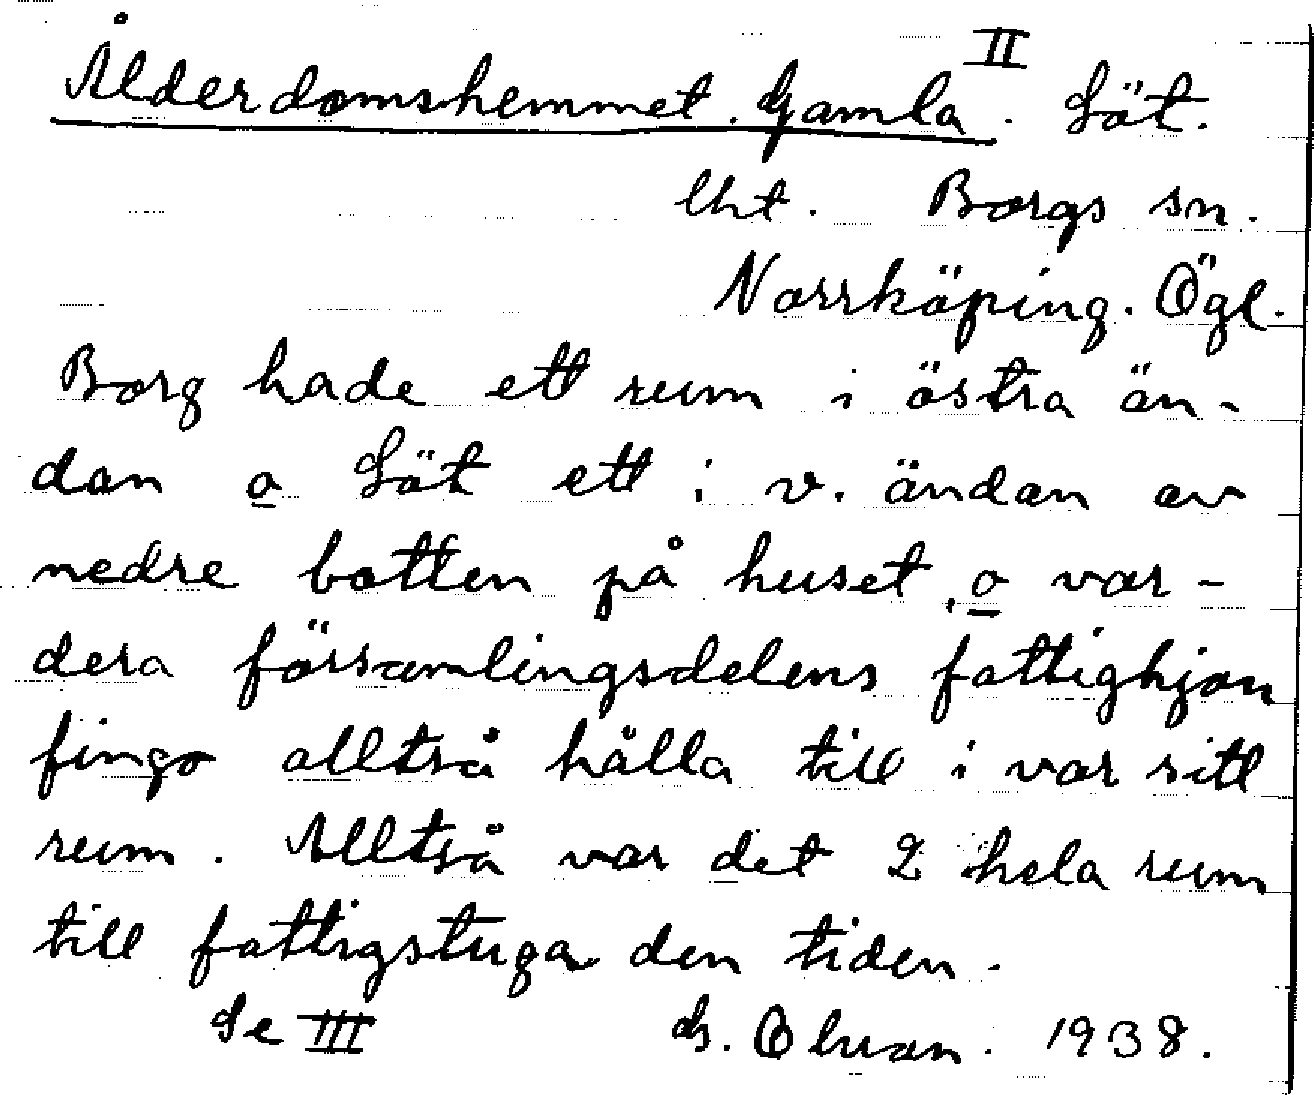 II
Ålderdomshemmet. Gamla. Löt.
lht. Borgs sn.
Norrköping. Ögl.
Borg hade ett rum i östra än-
dan o Löt ett i v. ändan av
nedre botten på huset, o var-
dera församlingsdelens fattighjon
fingo alltså hålla till i var sitt
rum. Alltså var det 2 hela rum
till fattigstuga den tiden.
Se III 1938.